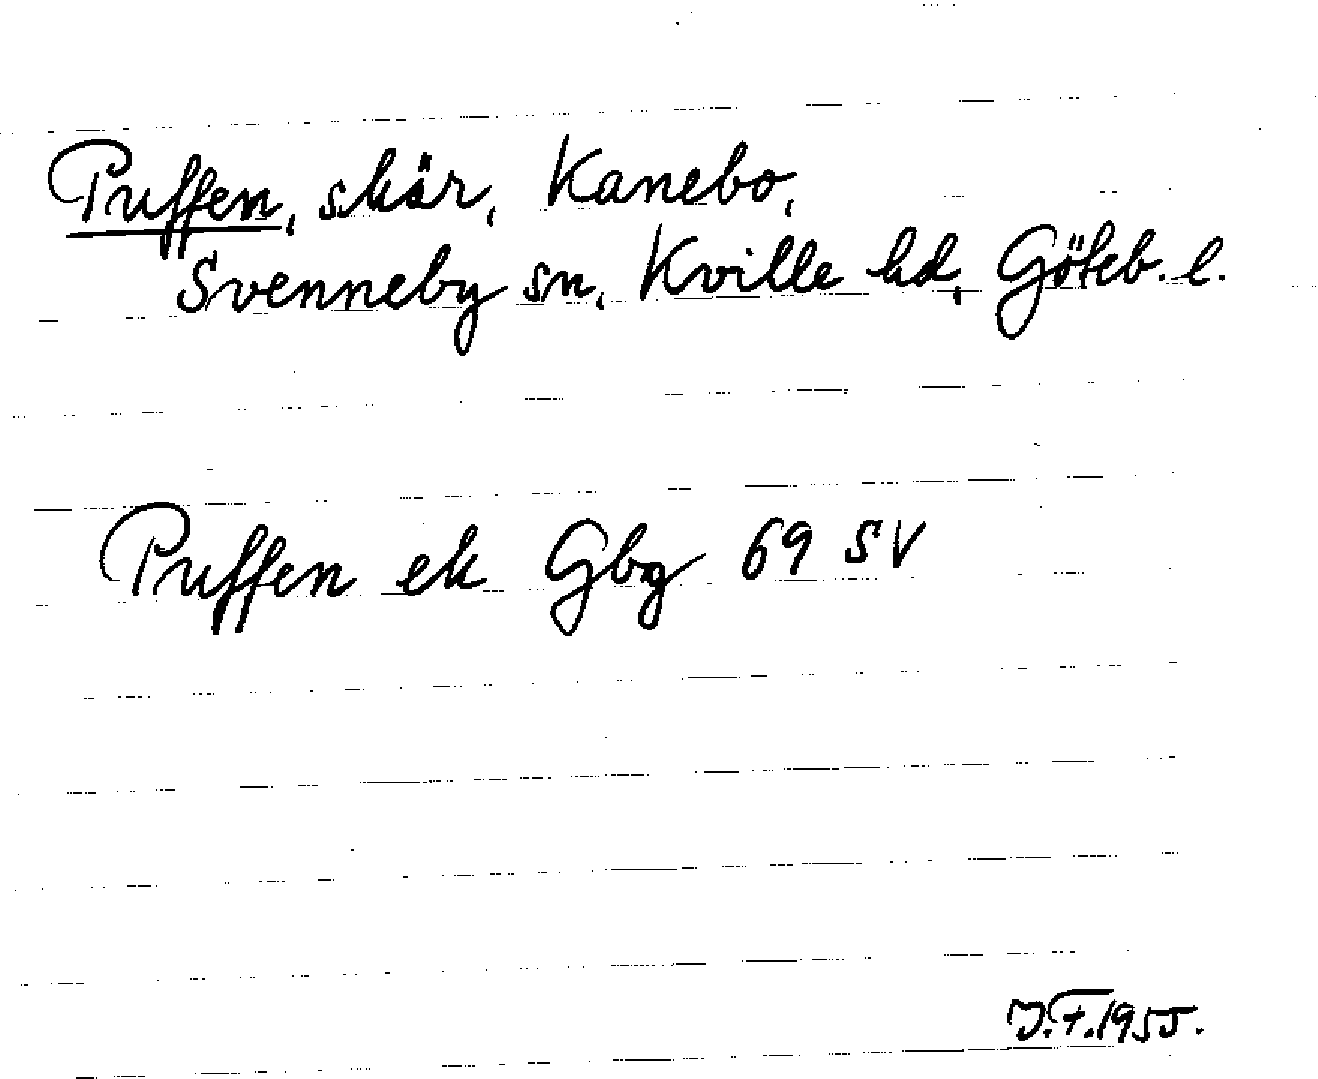 Puffen, skär, Kanebo,
Svenneby sn, Kville hd, Göteb. l.
Puffen ek Gbg 69 SV
J.F.1955.